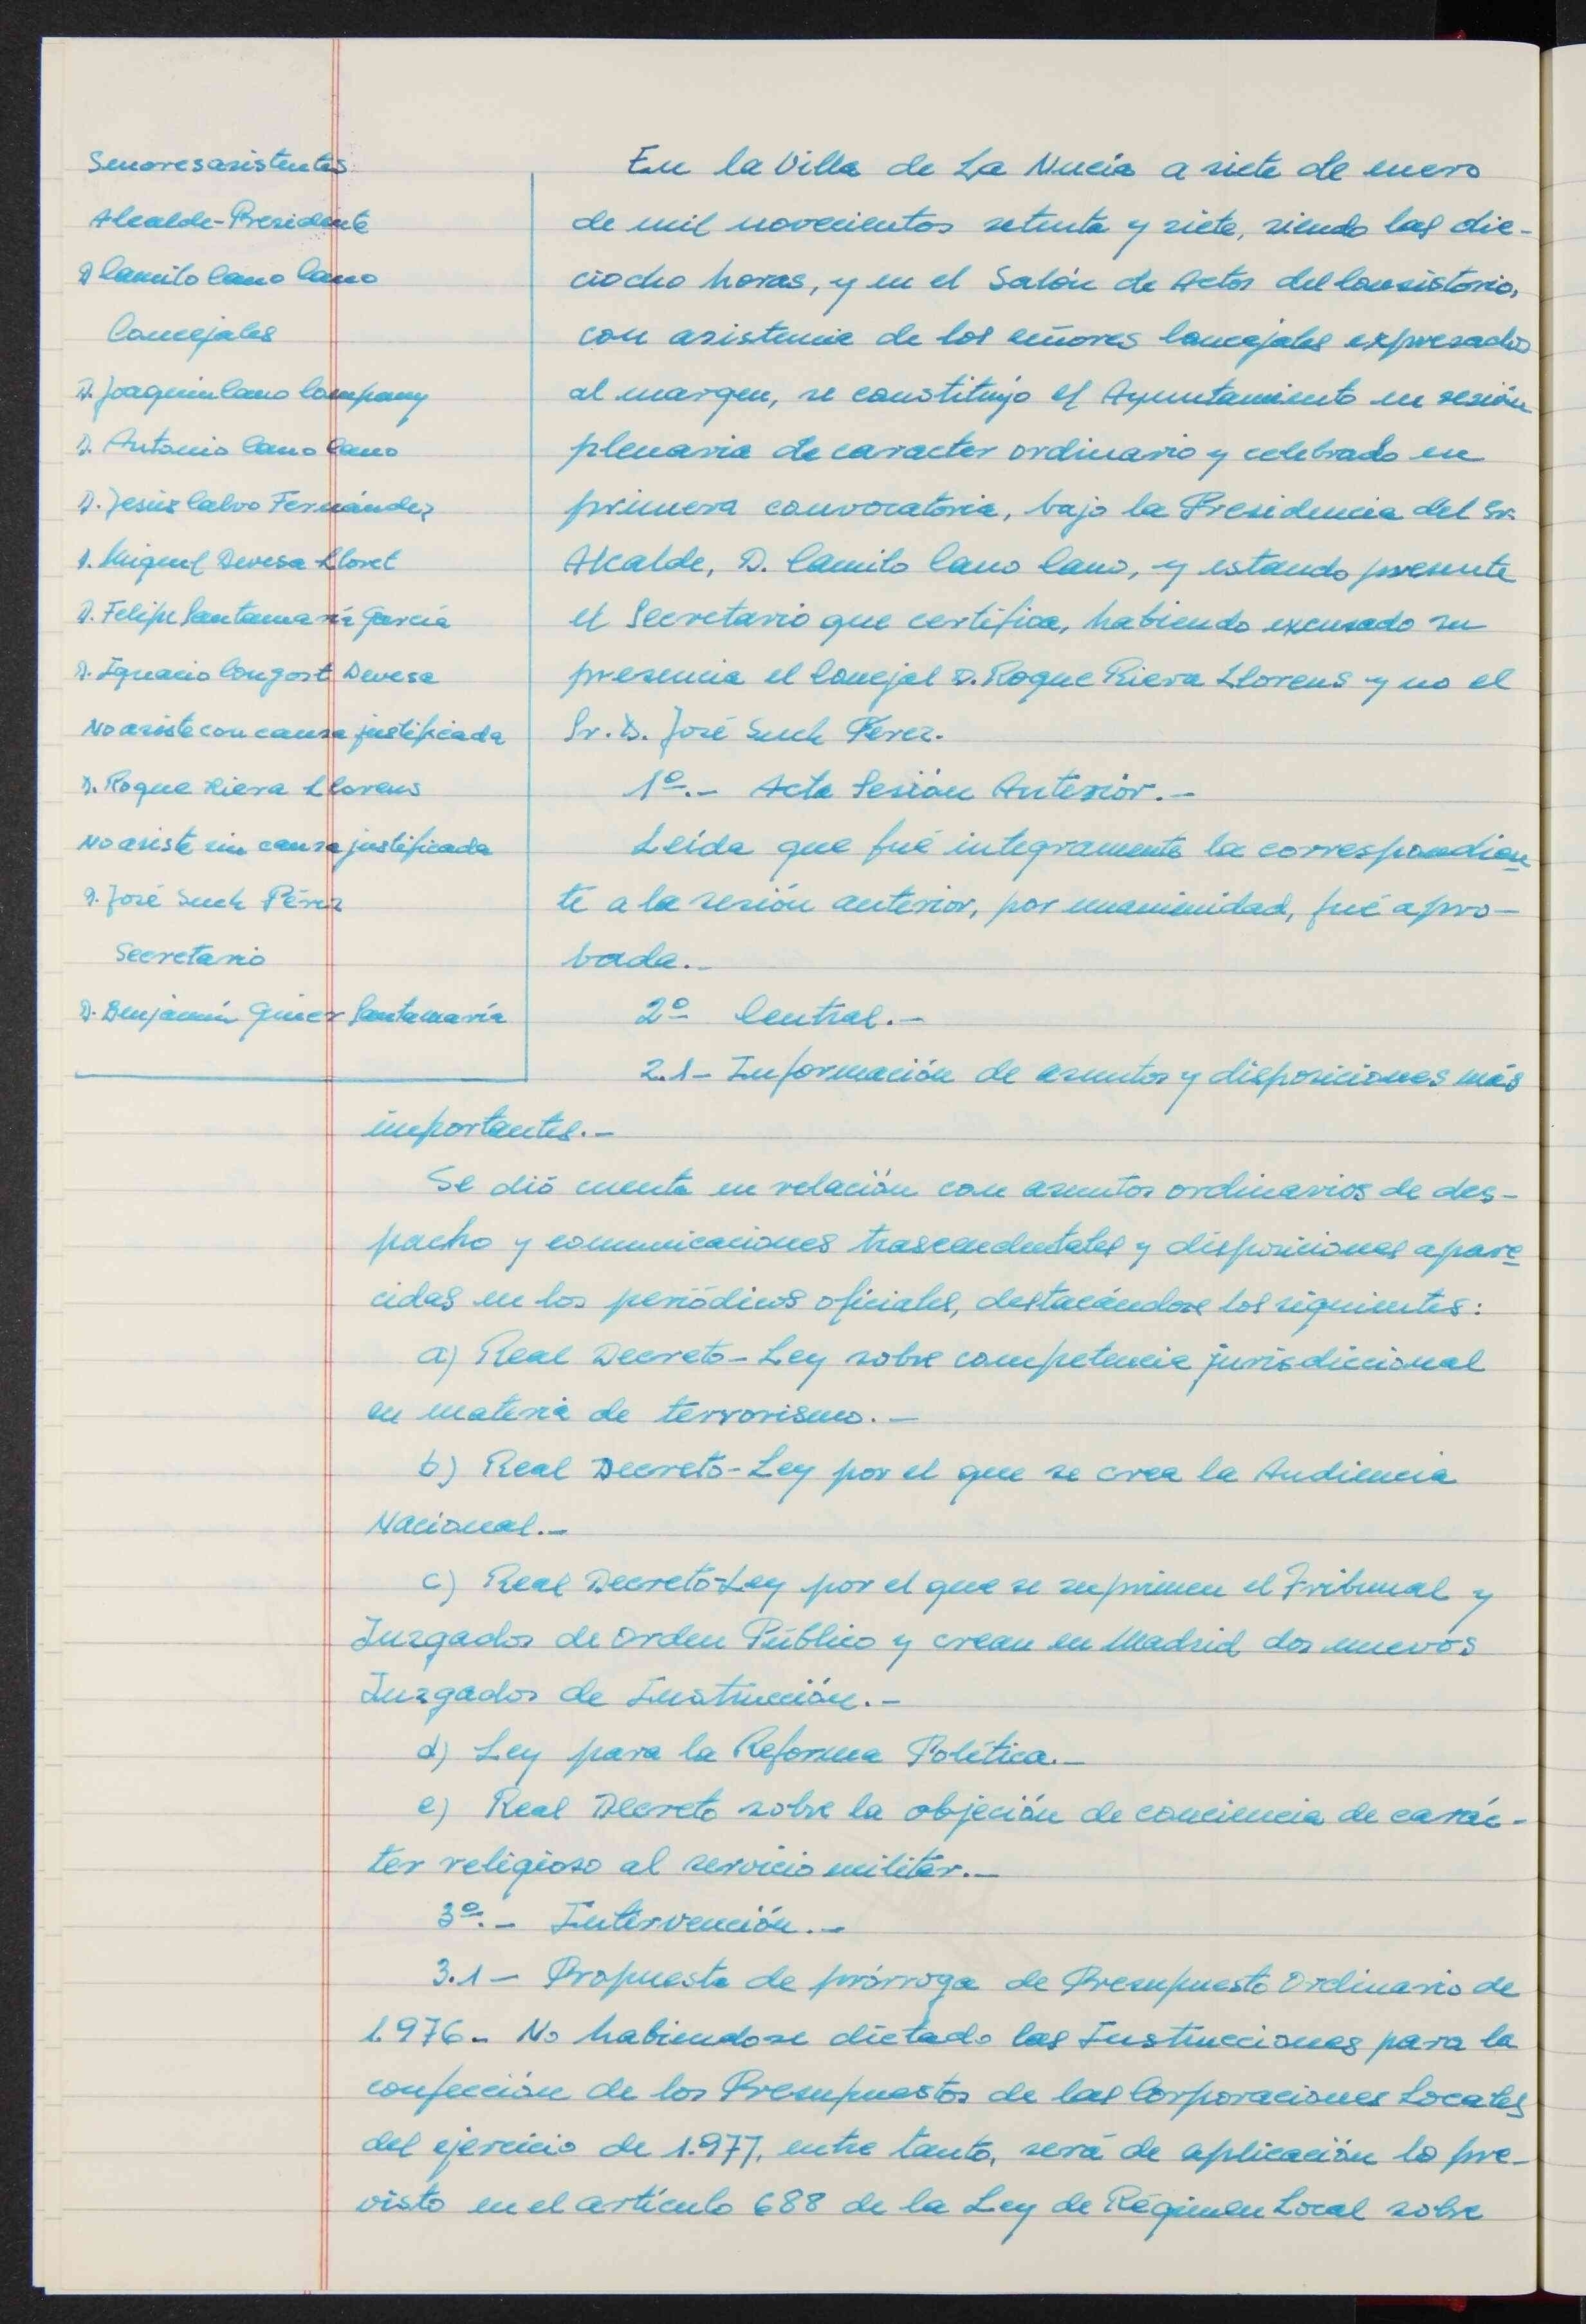 Senores asistentes
Alcalde-Presidente
D Camilo Cano Cano
Concejales
D. Joaquin Cano Company
D. Antonio Cano Cano
D. Jesús Calvo Fernández
D. Miguel Devesa Lloret
D. Felipe Santamaría García
D. Ignacio Congost Devesa
No asiste con causa justificada
D. Roque Riera Llorens
No asiste sin causa justificada
D. José Such Pérez
Secretario
D. Benjamín Giner Santamaría
En la Villa de La Nucía a siete de enero
de mil novecientos setenta y siete, siendo las die-
ciocho horas, y en el Salón de Actos del Consistorio,
con asistencia de los señores Concejales expresados
al margen, se constituyo el Ayuntamiento en sesión
plenaria de caracter ordinario y celebrado en
primera convocatoria, bajo la Presidencia del Sr.
Alcalde, D. Camilo Cano Cano, y estando presente
el Secretario que certifica, habiendo excusado su
presencia el Concejal D. Roque Riera Llorens y no el
Sr. D. José Such Pérez.
1º.- Acta Sesión Anterior.-
Leída que fué integramente la correspondien
te a la sesión anterior, por unanimidad, fué apro-
bada.-
2º Central.-
2.1- Información de asuntos y disposiciones más
importantes.-
Se dió cuenta en relación con asuntos ordinarios de des-
pacho y comunicaciones trascendentales y disposiciones apare
cidas en los periódicos oficiales, destacándose los siguientes:
a) Real Decreto-Ley sobre competencia jurisdiccional
en materia de terrorismo.-
b) Real Decreto-Ley por el que se crea la Audiencia
Nacional.-
c) Real Decreto-Ley por el que se suprimen el Tribunal y
Juzgados de Orden Público y crean en Madrid dos nuevos
Juzgados de Instrucción.-
d) Ley para la Reforma Política.-
e) Real Decreto sobre la objeción de conciencia de carác-
ter religioso al servicio militar.-
3º.- Intervención.-
3.1- Propuesta de prórroga de Presupuesto Ordinario de
1.976.- No habiendose dictado las Instrucciones para la
confección de los Presupuestos de las Corporaciones Locales
del ejercicio de 1.977, entre tanto, será de aplicación lo pre-
visto en el artículo 688 de la Ley de Régimen Local sobre